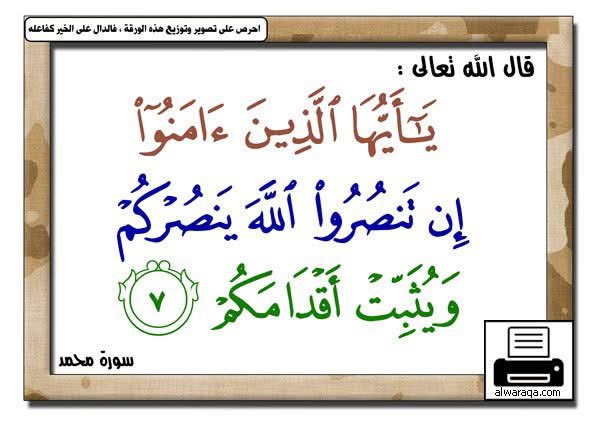 احرص على تصوير وتوزيع هذه الورقة ، فالدال على الخير كفاعله
قال الله تعالى :
يَـٰٓأَيُّهَا ٱلَّذِينَ ءَامَنُوٓا۟
إِن تَنصُرُوا۟ ٱللَّهَ يَنصُرْكُمْ
وَيُثَبِّتْ أَقْدَامَكُمْ ٧
سورة محمد
alwaraqa.com